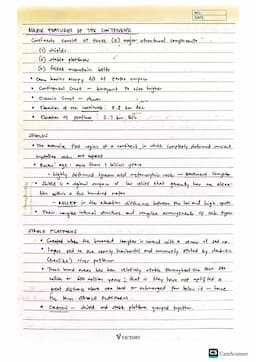 NO.
DATE
MAJOR FEATURES OF THE CONTINENTS
Continents consist of three (3) major structural components:
(1) shields
(2) stable platforms
(3) folded mountain belts
Ocean basins occupy 2/3 of Earth's surface
Continental Crust - buoyant to rise higher
Oceanic Crust - denser
Elevation of the continents: 0.8 km
Elevation of seafloor: 3.7 km
SHIELDS
The extensive, flat region of a continent, in which completely deformed ancient
crystalline rocks are exposed
Rocks' age: more than 1 billion years
highly deformed igneous and metamorphic rocks - BASEMENT COMPLEX
Shield is a regional surface of low relief that generally has an elevation
within a few hundred meters
RELIEF is the elevation difference between the low and high spots
Their complex internal structure and complex arrangements of rock types
STABLE PLATFORMS
Created when the basement complex is covered with a veneer of sed. rx
Layers and are nearly horizontal and commonly etched by dendritic
(treelike) river patterns
These broad areas have been relatively stable throughout the last 500
million or 600 million years; that is they have not uplifted a
great distance above sea level or submerged far below it - hence
the term STABLE PLATFORMS
CRATONS - shield and stable platform grouped together.
VICTORY
CS CamScanner